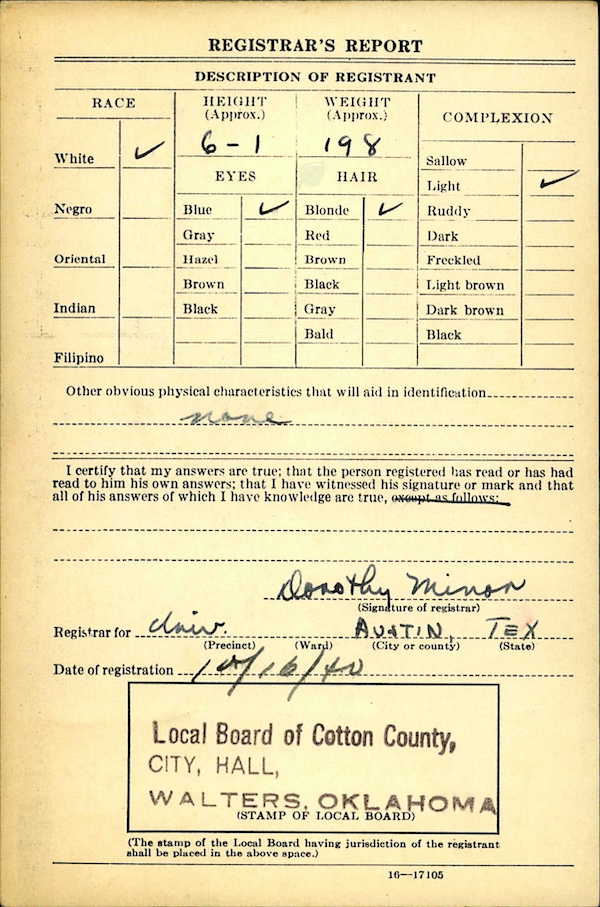 REGISTRAR'S REPORT
DESCRIPTION OF REGISTRANT
RACE
HEIGHT
(Approx.)
WEIGHT
(Approx.)
COMPLEXION
6-1
198
White ✓
EYES
HAIR
Sallow
Light ✓
Negro
Blue ✓
Blonde ✓
Ruddy
Gray
Red
Dark
Oriental
Hazel
Brown
Freckled
Brown
Black
Light brown
Indian
Black
Gray
Dark brown
Bald
Black
Filipino
Other obvious physical characteristics that will aid in identification
none
I certify that my answers are true; that the person registered has read or has had
read to him his own answers; that I have witnessed his signature or mark and that
all of his answers of which I have knowledge are true, except as follows:
Dorothy Minor
(Signature of registrar)
Registrar for Univ. AUSTIN, TEX
(Precinct) (Ward) (City or county) (State)
Date of registration 10/16/40
Local Board of Cotton County,
CITY, HALL,
WALTERS, OKLAHOMA
(STAMP OF LOCAL BOARD)
(The stamp of the Local Board having jurisdiction of the registrant
shall be placed in the above space.)
16—17105